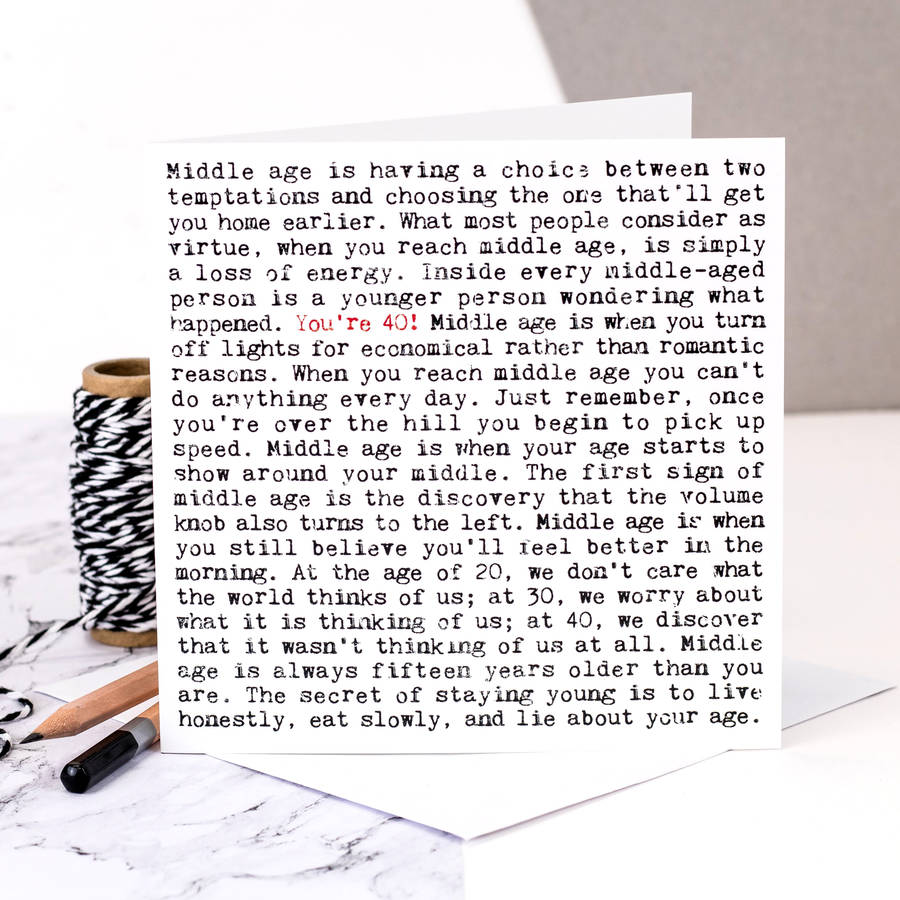 Middle age is having a choice between two
temptations and choosing the one that'll get
you home earlier. What most people consider as
virtue, when you reach middle age, is simply
a loss of energy. Inside every middle-aged
person is a younger person wondering what
happened. You're 40! Middle age is when you turn
off lights for economical rather than romantic
reasons. When you reach middle age you can't
do anything every day. Just remember, once
you're over the hill you begin to pick up
speed. Middle age is when your age starts to
show around your middle. The first sign of
middle age is the discovery that the volume
knob also turns to the left. Middle age is when
you still believe you'll feel better in the
morning. At the age of 20, we don't care what
the world thinks of us; at 30, we worry about
what it is thinking of us; at 40, we discover
that it wasn't thinking of us at all. Middle
age is always fifteen years older than you
are. The secret of staying young is to live
honestly, eat slowly, and lie about your age.